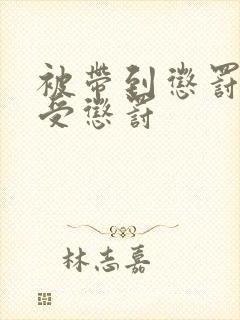 被帶到懲罰
受懲罰
林志嘉